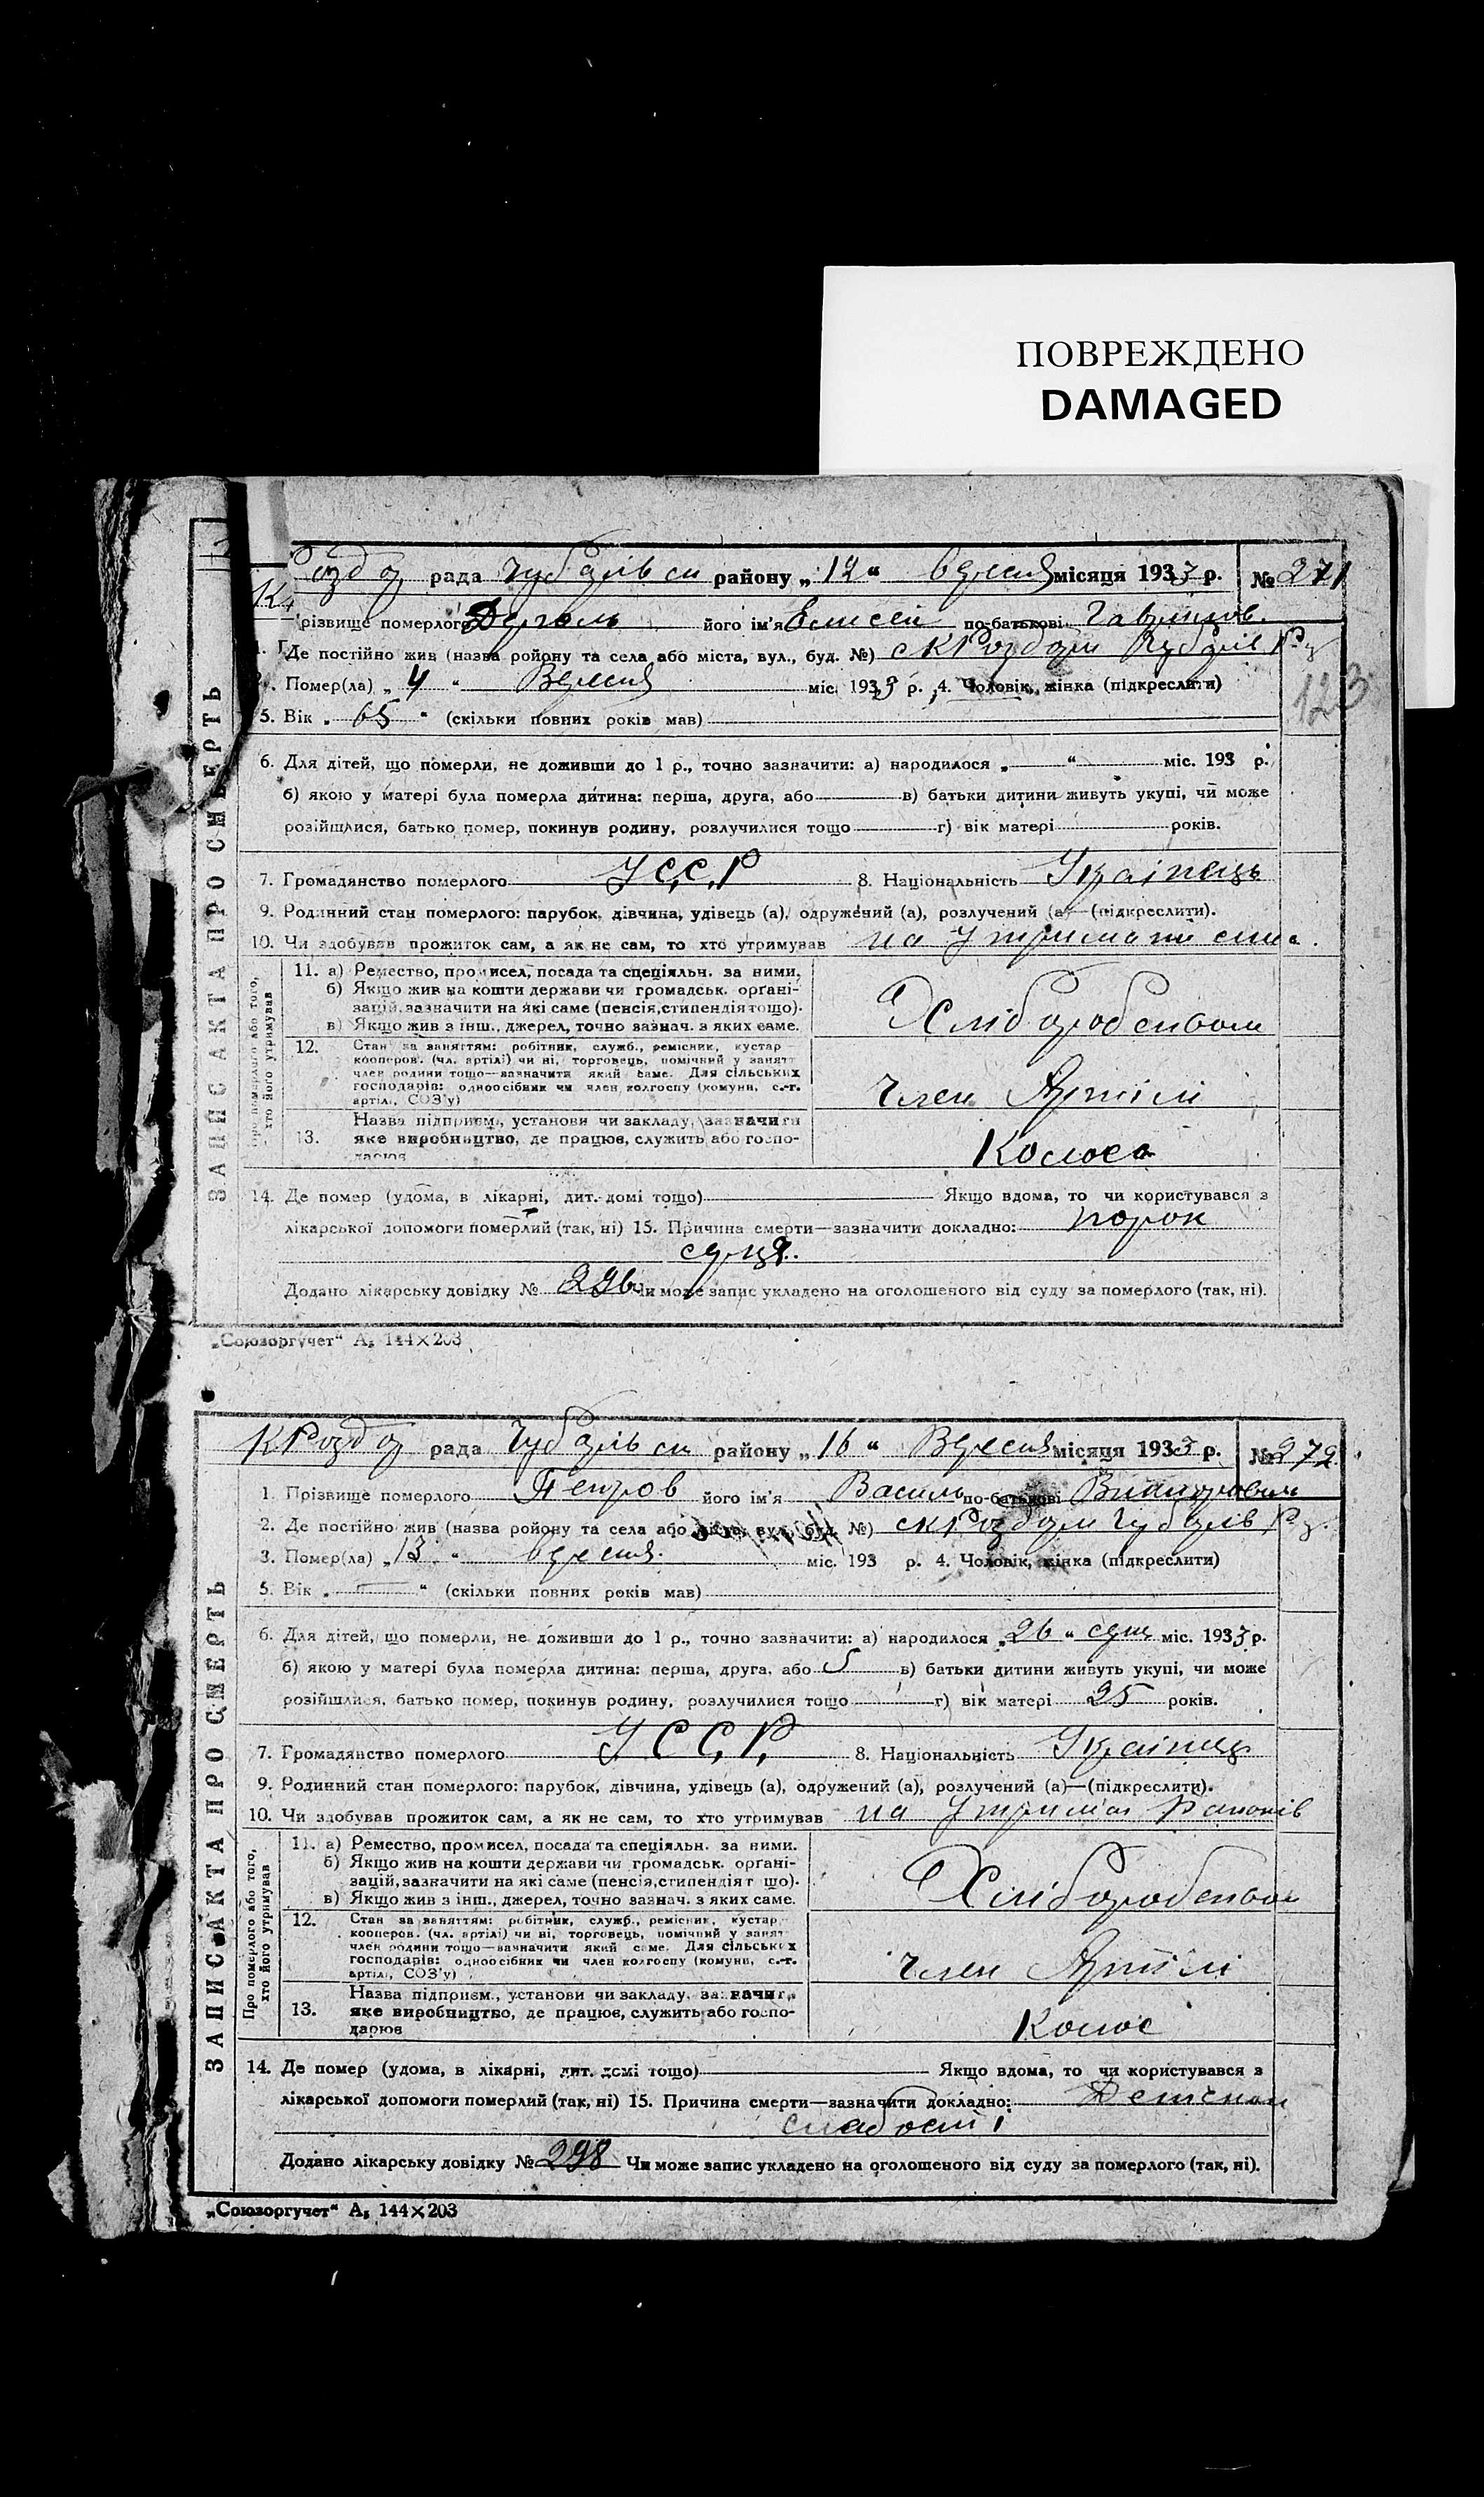 ПОВРЕЖДЕНО
DAMAGED
рада района „12“ вересня місяця 1933 р. № 271
різвище померлого його ім'я Єлисей по-батькові
Де постійно жив (назва ройону та села або міста, вул., буд. №)
Помер(ла) „4“ Вересня міс. 1933 р. 4. Чоловік, жінка (підкреслити)
5. Вік „65“ (скільки повних років мав)
123
6. Для дітей, що померли, не доживши до 1 р., точно зазначити: а) народилося „ “ міс. 193 р.
б) якою у матері була померла дитина: перша, друга, або в) батьки дитини живуть укупі, чи може
розійшлися, батько помер, покинув родину, розлучилися тощо г) вік матері років.
7. Громадянство померлого УССР 8. Національність Українець
9. Родинний стан померлого: парубок, дівчина, удівець (а), одружений (а), розлучений (а)—(підкреслити).
10. Чи здобував прожиток сам, а як не сам, то хто утримував на сина
ЗАПИС АКТА ПРО СМЕРТЬ
Про померлого або того, хто його утримував
11. а) Ремество, промисел, посада та спеціяльн. за ними.
б) Якщо жив на кошти держави чи громадськ. орґані-
зацій, зазначити на які саме (пенсія, стипендія тощо).
в) Якщо жив з інш., джерел, точно зазнач. з яких саме.
Хліборобством
12. Стан за заняттям: робітник, служб., ремісник, кустар
кооперов. (чл. артілі) чи ні, торговець, помічний у занятт
член родини тощо—зазначити який саме. Для сільських
господарів: одноосібник чи член колгоспу (комуни, с.-г.
артілі, СОЗ'у)
член Артілі
Назва підприєм., установи чи закладу, зазначити
13. яке виробництво, де працює, служить або госпо-
дарює
Колос
14. Де помер (удома, в лікарні, дит. домі тощо) Якщо вдома, то чи користувався з
лікарської допомоги померлий (так, ні) 15. Причина смерти—зазначити докладно: порок
серця.
Додано лікарську довідку № 296 Чи може запис укладено на оголошеного від суду за померлого (так, ні).
„Союзоргучет“ А₅ 144×203
рада району „16“ Вересня місяця 1933 р. № 272
1. Прізвище померлого Петров його ім'я Василь по-батькові
2. Де постійно жив (назва ройону та села або міста, вул., буд. №)
3. Помер(ла) „13“ вересня міс. 193 р. 4. Чоловік, жінка (підкреслити)
5. Вік „—“ (скільки повних років мав)
6. Для дітей, що померли, не доживши до 1 р., точно зазначити: а) народилося „26“ міс. 1933 р.
б) якою у матері була померла дитина: перша, друга, або 5 в) батьки дитини живуть укупі, чи може
розійшлися, батько помер, покинув родину, розлучилися тощо г) вік матері 25 років.
7. Громадянство померлого У.С.С.Р. 8. Національність Українець
9. Родинний стан померлого: парубок, дівчина, удівець (а), одружений (а), розлучений (а)—(підкреслити).
10. Чи здобував прожиток сам, а як не сам, то хто утримував на
ЗАПИС АКТА ПРО СМЕРТЬ
Про померлого або того, хто його утримував
11. а) Ремество, промисел, посада та спеціяльн. за ними.
б) Якщо жив на кошти держави чи громадськ. орґані-
зацій, зазначити на які саме (пенсія, стипендія т що).
в) Якщо жив з інш., джерел, точно зазнач. з яких саме.
Хліборобством
12. Стан за заняттям: робітник, служб., ремісник, кустар
кооперов. (чл. артілі) чи ні, торговець, помічний у занят
член родини тощо—зазначити який саме. Для сільських
господарів: одноосібник чи член колгоспу (комуни, с.-г.
артілі, СОЗ'у)
член Артілі
Назва підприєм., установи чи закладу, зазначити
13. яке виробництво, де працює, служить або госпо-
дарює
Колос
14. Де помер (удома, в лікарні, дит. домі тощо) Якщо вдома, то чи користувався з
лікарської допомоги померлий (так, ні) 15. Причина смерти—зазначити докладно:
слабості
Додано лікарську довідку № 298 Чи може запис укладено на оголошеного від суду за померлого (так, ні).
„Союзоргучет“ А₅ 144×203